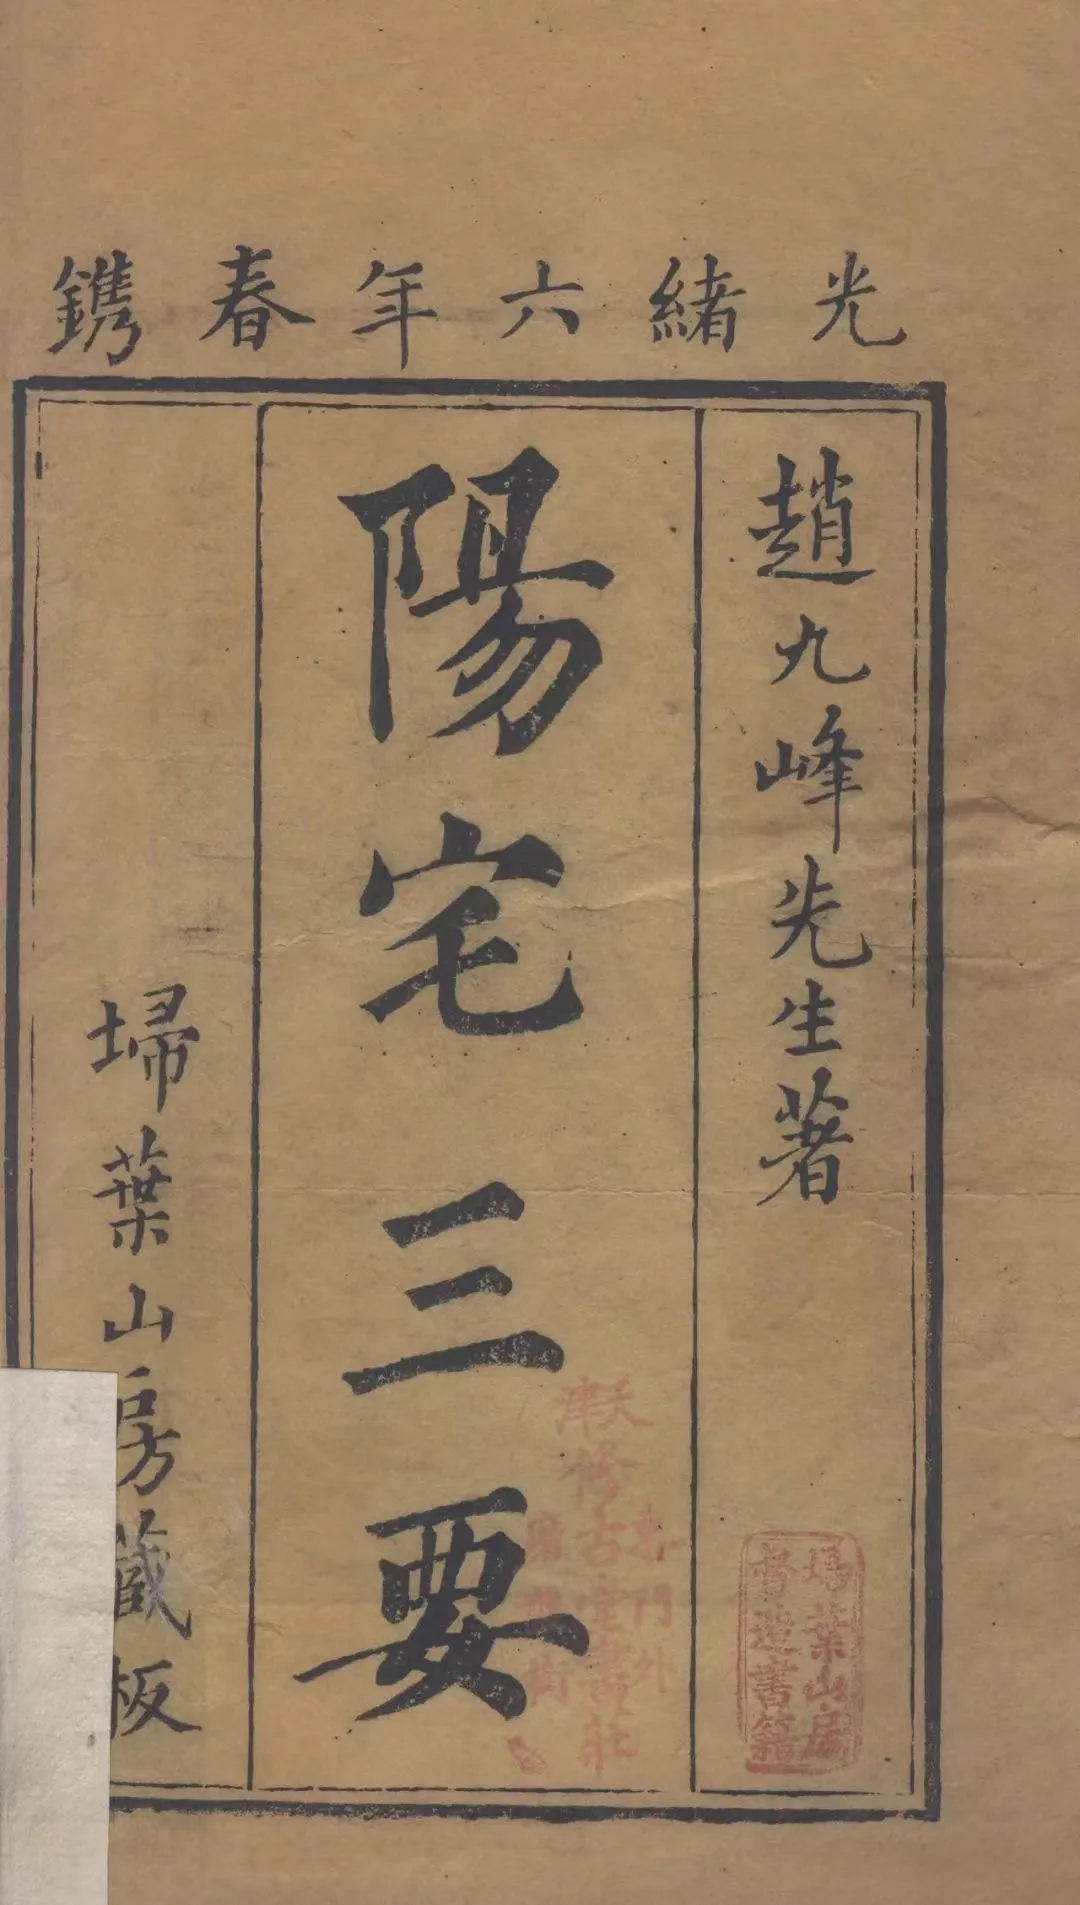 光緒六年春鐫
趙九峰先生著
陽宅三要
埽葉山房藏板
埽葉山房
督造書籍
天津
修古堂書莊
東門外